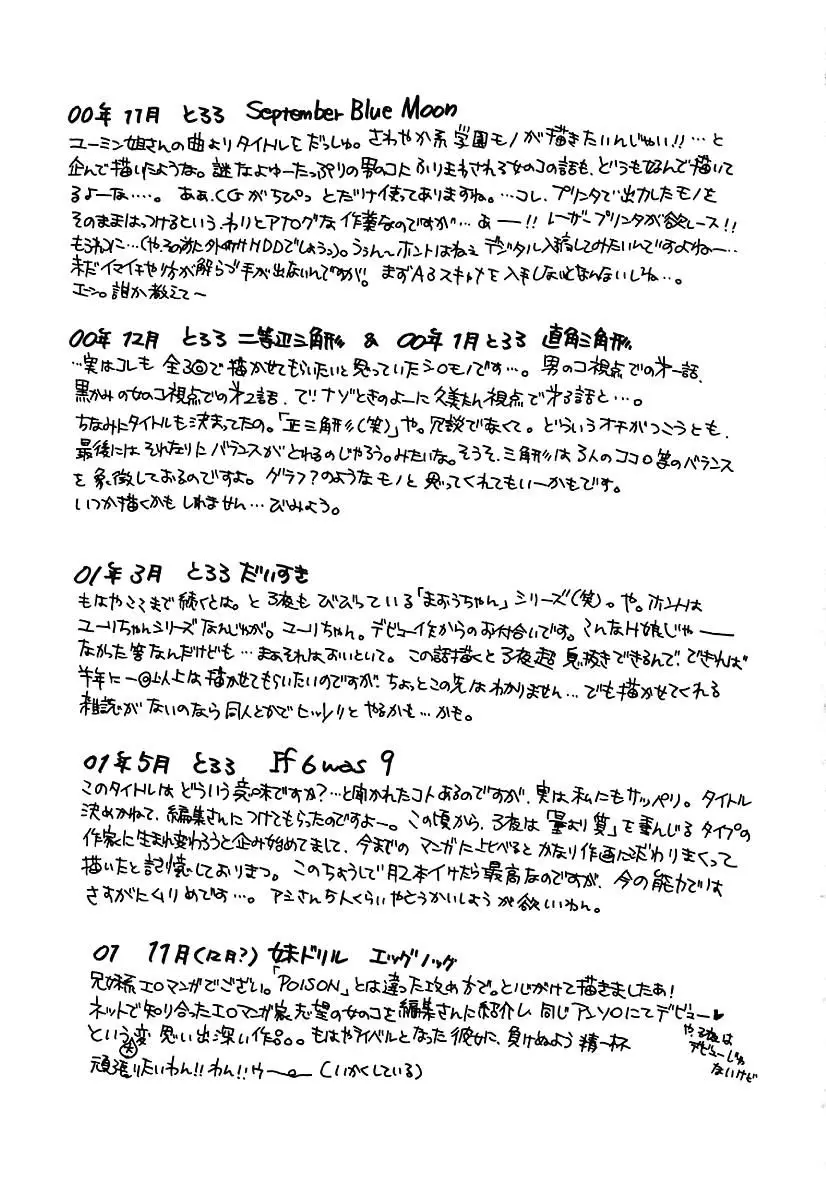 00年11月 とろろ September Blue Moon
ユーミン姐さんの曲よりタイトルをだっしゅ。さわやか系学園モノが描きたいんじゃい!!…と
企んで描いたような。謎なよゆーたっぷりの男のコにふりまわされる女のコの話も、どうもなんで描いて
るよーな…。ああ、CGがちびっとだけ使ってありますね。…コレ、プリンタで出力したモノを
そのままはっつけるという、わりとアナログな作業なのですが…あーー!!レーザープリンタが欲レース!!
もろねに…(やその前に外付けHDDでしょうっ)。ううん〜ホントはねぇデジタル入稿してみたいんですよねー…
未だイマイチやり方が解らず手が出ないんですが。まずA3スキャナを入手しないとなんないしね…。
エーン。誰か教えて〜
00年12月 とろろ 二等辺三角形 & 00年1月とろろ 直角三角形
…実はコレも全3回で描かせてもらいたいと思っていたシロモノです…。男のコ視点での第一話、
黒かみの女のコ視点での第2話、で!ナゾときのよーに久美たん視点で第3話と…。
ちなみにタイトルも決まってたの。「正三角形(笑)」や。冗談でなくて。どういうオチがつこうとも、
最後にはそれなりにバランスがとれるのじゃろう。みたいな。そうそ、三角形は3人のココロ等のバランス
を象徴しておるのですよ。グラフ?のようなモノと思ってくれてもいーかもです。
いつか描くかもしれません…びみょう。
01年3月 とろろ だいすき
もはやここまで続くとは。と3夜もびびっている「まおうちゃん」シリーズ(笑)。や。ホントは
ユーリちゃんシリーズなんじゃが。ユーリちゃん。デビュー作からのお付合いです。こんなH娘じゃー
なかった筈なんだけども…まぁそれはおいといて。この話描くと3夜超息抜きできるんで、できれば
半年に一回以上は描かせてもらいたいのですが、ちょっとこの先はわかりません…でも描かせてくれる
雑誌がないのなら同人とかでヒッソリとやるかも…かも。
01年5月 とろろ If 6 was 9
このタイトルはどういう意味ですか?…と聞かれたコトあるのですが、実は私にもサッパリ。タイトル
決めかねて、編集さんにつけてもらったのですよー。この頃から、3夜は「量より質」を重んじるタイプの
作家に生まれ変わろうと企み始めてまして、今までのマンガに比べるとかなり作画にこだわりまくって
描いたと記憶しておりまつ。このちょうしで月2本イけたら最高なのですが、今の能力では
さすがにムリめです…。アシさん5人くらいやとうかいしょうが欲いわん。
01 11月(12月?) 妹ドリル エッグノッグ
兄妹系エロマンガでござい。「POISON」とは違った攻め方で。と心がけて描きましたぁ!
ネットで知り合ったエロマンガ家志望の女のコを編集さんに紹介し同じアンソロにてデビュー♥
という変 思い出深い作品。もはやライバルとなった彼女に、負けぬよう精一杯
頑張りたいわん!!わん!!ウー (いかくしている)
や、3夜は
デビューじゃ
ないけど